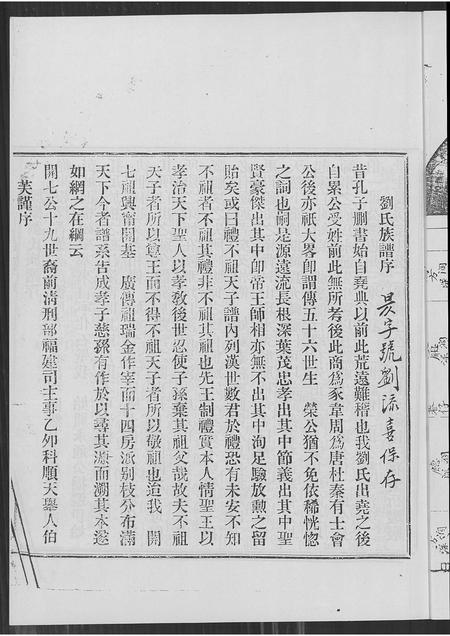 劉氏族譜序
昃字號劉添喜保存
昔孔子刪書始自堯典以前此荒遠難稽也我劉氏出堯之後
自累公受姓前此無所考後此商為豕韋周為唐杜秦有士會
公後亦祇大畧卽謂傳五十六世生 榮公猶不免依稀恍惚
之詞也嗣是源遠流長根深葉茂忠孝出其中節義出其中聖
賢豪傑出其中卽帝王師相亦無不出其中洵足驗放勲之留
貽矣或曰禮不祖天子譜內列漢世數君於禮恐有未安不知
不祖者不祖其禮非不祖其祖也先王制禮實本人情聖王以
孝治天下聖人以孝敎後世忍使子孫棄其祖父哉故夫不祖
天子者所以尊王而不得不祖天子者所以敬祖也迨我 開
七祖興甯開基 廣傳祖瑞金作宰而十四房派別枝分布滿
天下今者譜系吿成孝子慈孫有作於以尋其源而溯其本遂
如網之在綱云
開七公十九世裔前淸刑部福建司主事乙卯科順天舉人伯
芙謹序